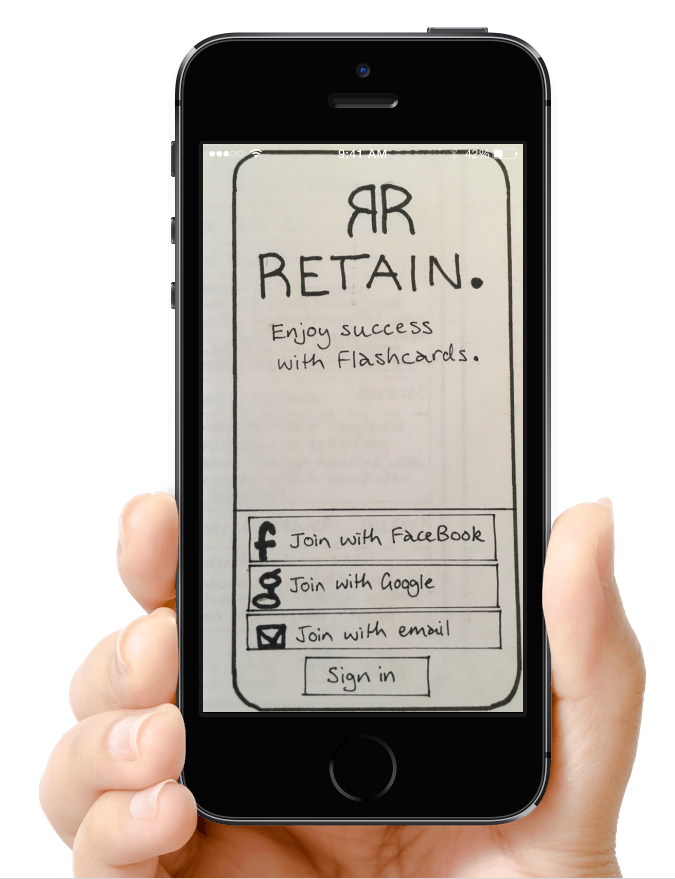 9:41 AM 42%
ЯR
RETAIN.
Enjoy success
with Flashcards.
f Join with FaceBook
g Join with Google
Join with email
Sign in